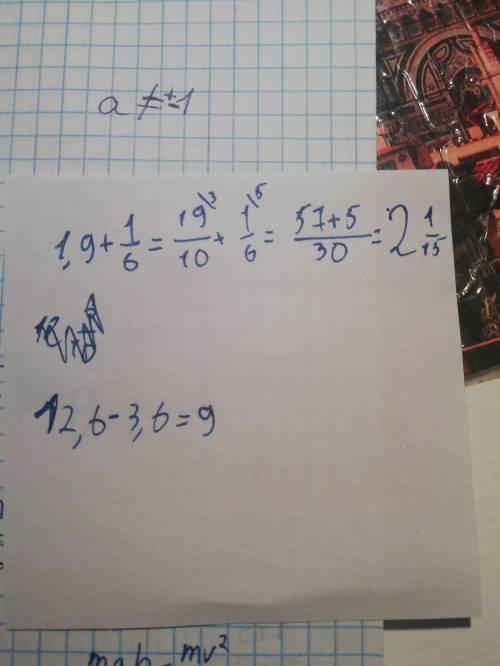 a ≠ ±1
1,9 + 1/6 = 19\3/10 + 1\5/6 = 57+5/30 = 2 1/15
12,6 - 3,6 = 9
mgh = mv²